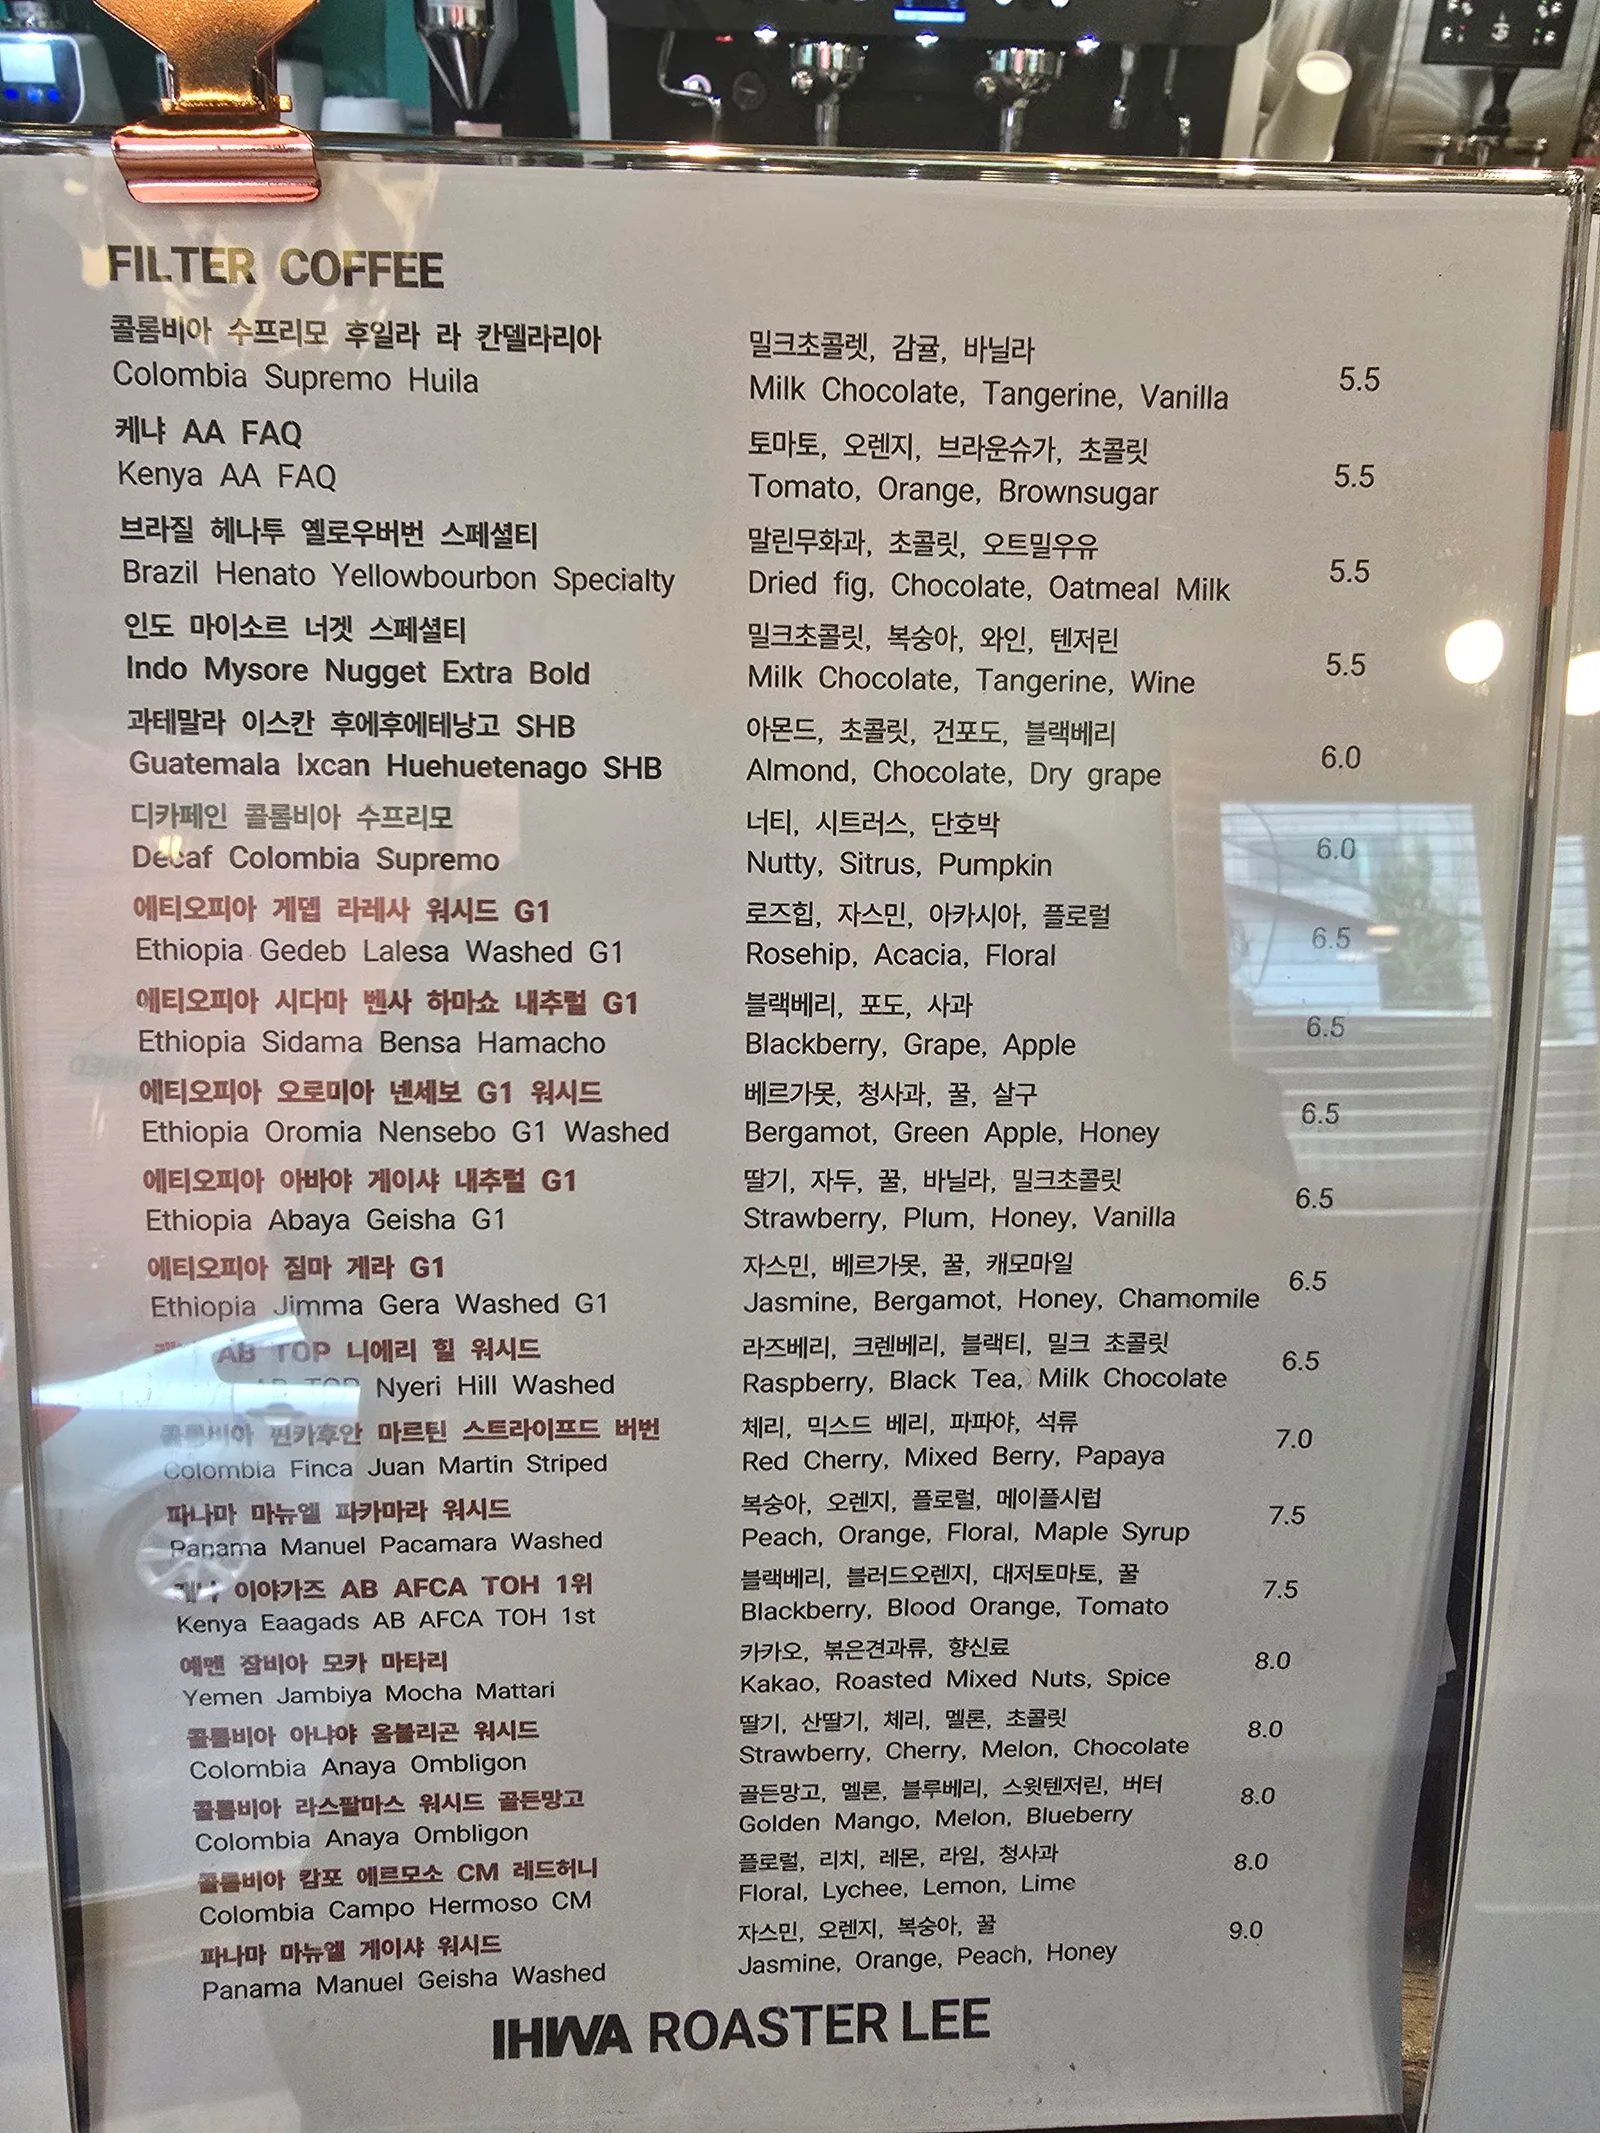 FILTER COFFEE
콜롬비아 수프리모 후일라 라 칸델라리아
Colombia Supremo Huila
밀크초콜렛, 감귤, 바닐라
Milk Chocolate, Tangerine, Vanilla
5.5
케냐 AA FAQ
Kenya AA FAQ
토마토, 오렌지, 브라운슈가, 초콜릿
Tomato, Orange, Brownsugar
5.5
브라질 헤나투 옐로우버번 스페셜티
Brazil Henato Yellowbourbon Specialty
말린무화과, 초콜릿, 오트밀우유
Dried fig, Chocolate, Oatmeal Milk
5.5
인도 마이소르 너겟 스페셜티
Indo Mysore Nugget Extra Bold
밀크초콜릿, 복숭아, 와인, 텐저린
Milk Chocolate, Tangerine, Wine
5.5
과테말라 이스칸 후에후에테낭고 SHB
Guatemala Ixcan Huehuetenago SHB
아몬드, 초콜릿, 건포도, 블랙베리
Almond, Chocolate, Dry grape
6.0
디카페인 콜롬비아 수프리모
Decaf Colombia Supremo
너티, 시트러스, 단호박
Nutty, Sitrus, Pumpkin
6.0
에티오피아 게뎁 라레사 워시드 G1
Ethiopia Gedeb Lalesa Washed G1
로즈힙, 자스민, 아카시아, 플로럴
Rosehip, Acacia, Floral
6.5
에티오피아 시다마 벤사 하마쇼 내추럴 G1
Ethiopia Sidama Bensa Hamacho
블랙베리, 포도, 사과
Blackberry, Grape, Apple
6.5
에티오피아 오로미아 넨세보 G1 워시드
Ethiopia Oromia Nensebo G1 Washed
베르가못, 청사과, 꿀, 살구
Bergamot, Green Apple, Honey
6.5
에티오피아 아바야 게이샤 내추럴 G1
Ethiopia Abaya Geisha G1
딸기, 자두, 꿀, 바닐라, 밀크초콜릿
Strawberry, Plum, Honey, Vanilla
6.5
에티오피아 짐마 게라 G1
Ethiopia Jimma Gera Washed G1
자스민, 베르가못, 꿀, 캐모마일
Jasmine, Bergamot, Honey, Chamomile
6.5
AB TOP 니에리 힐 워시드
AB TOP Nyeri Hill Washed
라즈베리, 크렌베리, 블랙티, 밀크 초콜릿
Raspberry, Black Tea, Milk Chocolate
6.5
콜롬비아 핀카후안 마르틴 스트라이프드 버번
Colombia Finca Juan Martin Striped
체리, 믹스드 베리, 파파야, 석류
Red Cherry, Mixed Berry, Papaya
7.0
파나마 마뉴엘 파카마라 워시드
Panama Manuel Pacamara Washed
복숭아, 오렌지, 플로럴, 메이플시럽
Peach, Orange, Floral, Maple Syrup
7.5
이야가즈 AB AFCA TOH 1위
Kenya Eaagads AB AFCA TOH 1st
블랙베리, 블러드오렌지, 대저토마토, 꿀
Blackberry, Blood Orange, Tomato
7.5
예멘 잠비아 모카 마타리
Yemen Jambiya Mocha Mattari
카카오, 볶은견과류, 향신료
Kakao, Roasted Mixed Nuts, Spice
8.0
콜롬비아 아나야 옴블리곤 워시드
Colombia Anaya Ombligon
딸기, 산딸기, 체리, 멜론, 초콜릿
Strawberry, Cherry, Melon, Chocolate
8.0
콜롬비아 라스팔마스 워시드 골든망고
Colombia Anaya Ombligon
골든망고, 멜론, 블루베리, 스윗텐저린, 버터
Golden Mango, Melon, Blueberry
8.0
콜롬비아 캄포 에르모소 CM 레드허니
Colombia Campo Hermoso CM
플로럴, 리치, 레몬, 라임, 청사과
Floral, Lychee, Lemon, Lime
8.0
파나마 마뉴엘 게이샤 워시드
Panama Manuel Geisha Washed
자스민, 오렌지, 복숭아, 꿀
Jasmine, Orange, Peach, Honey
9.0
IHWA ROASTER LEE